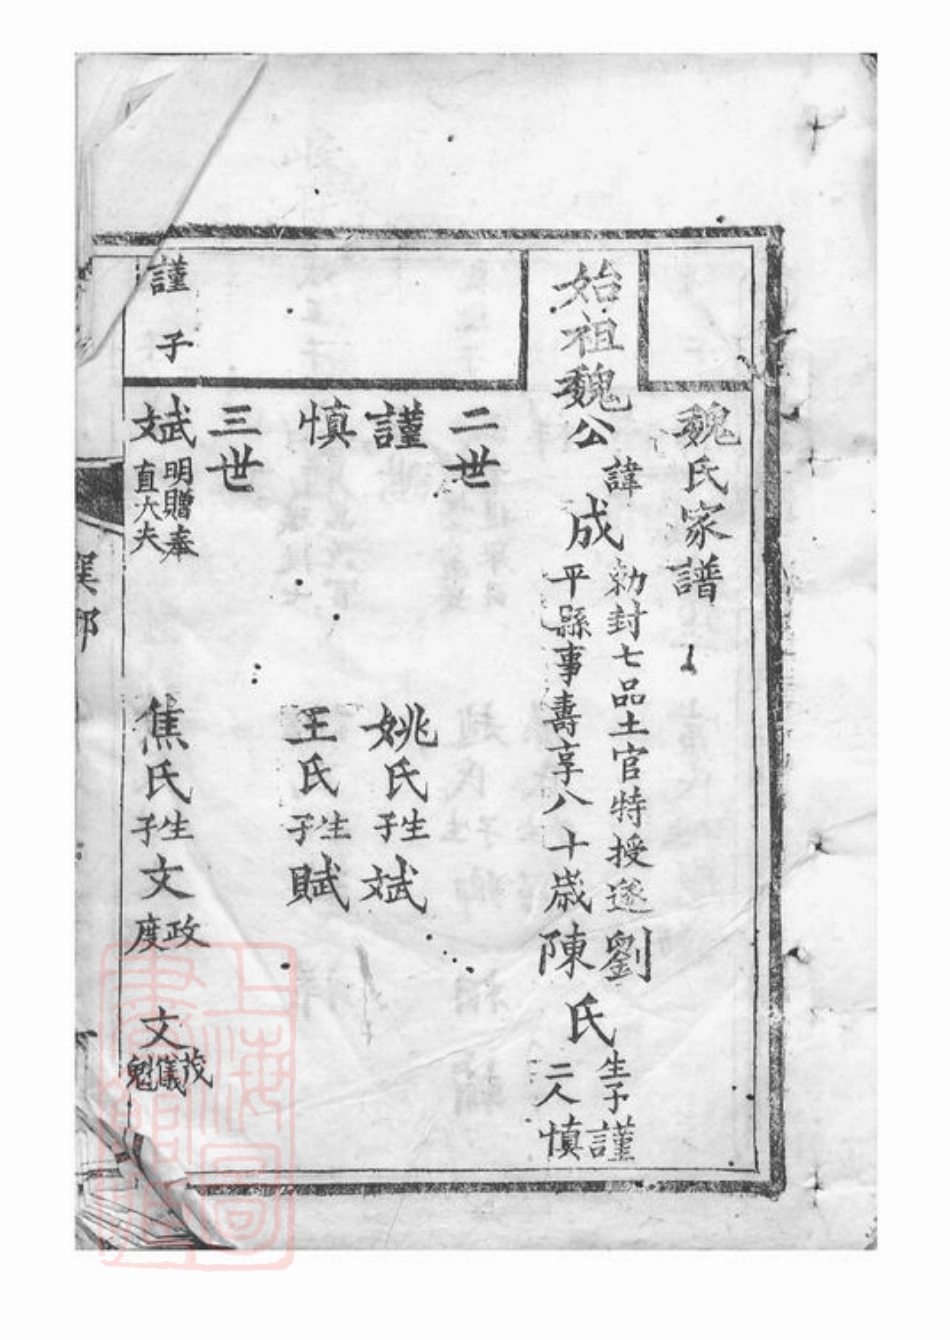 魏氏家譜
始祖魏公諱成勅封七品土官特授遼
平縣事壽享八十歲劉陳氏生子二人謹慎
二世
謹 姚氏生子斌
慎 王氏生子賦
三世
謹子
斌明贈奉直大夫 焦氏生子文政度 文茂儀魁
上海圖書館藏